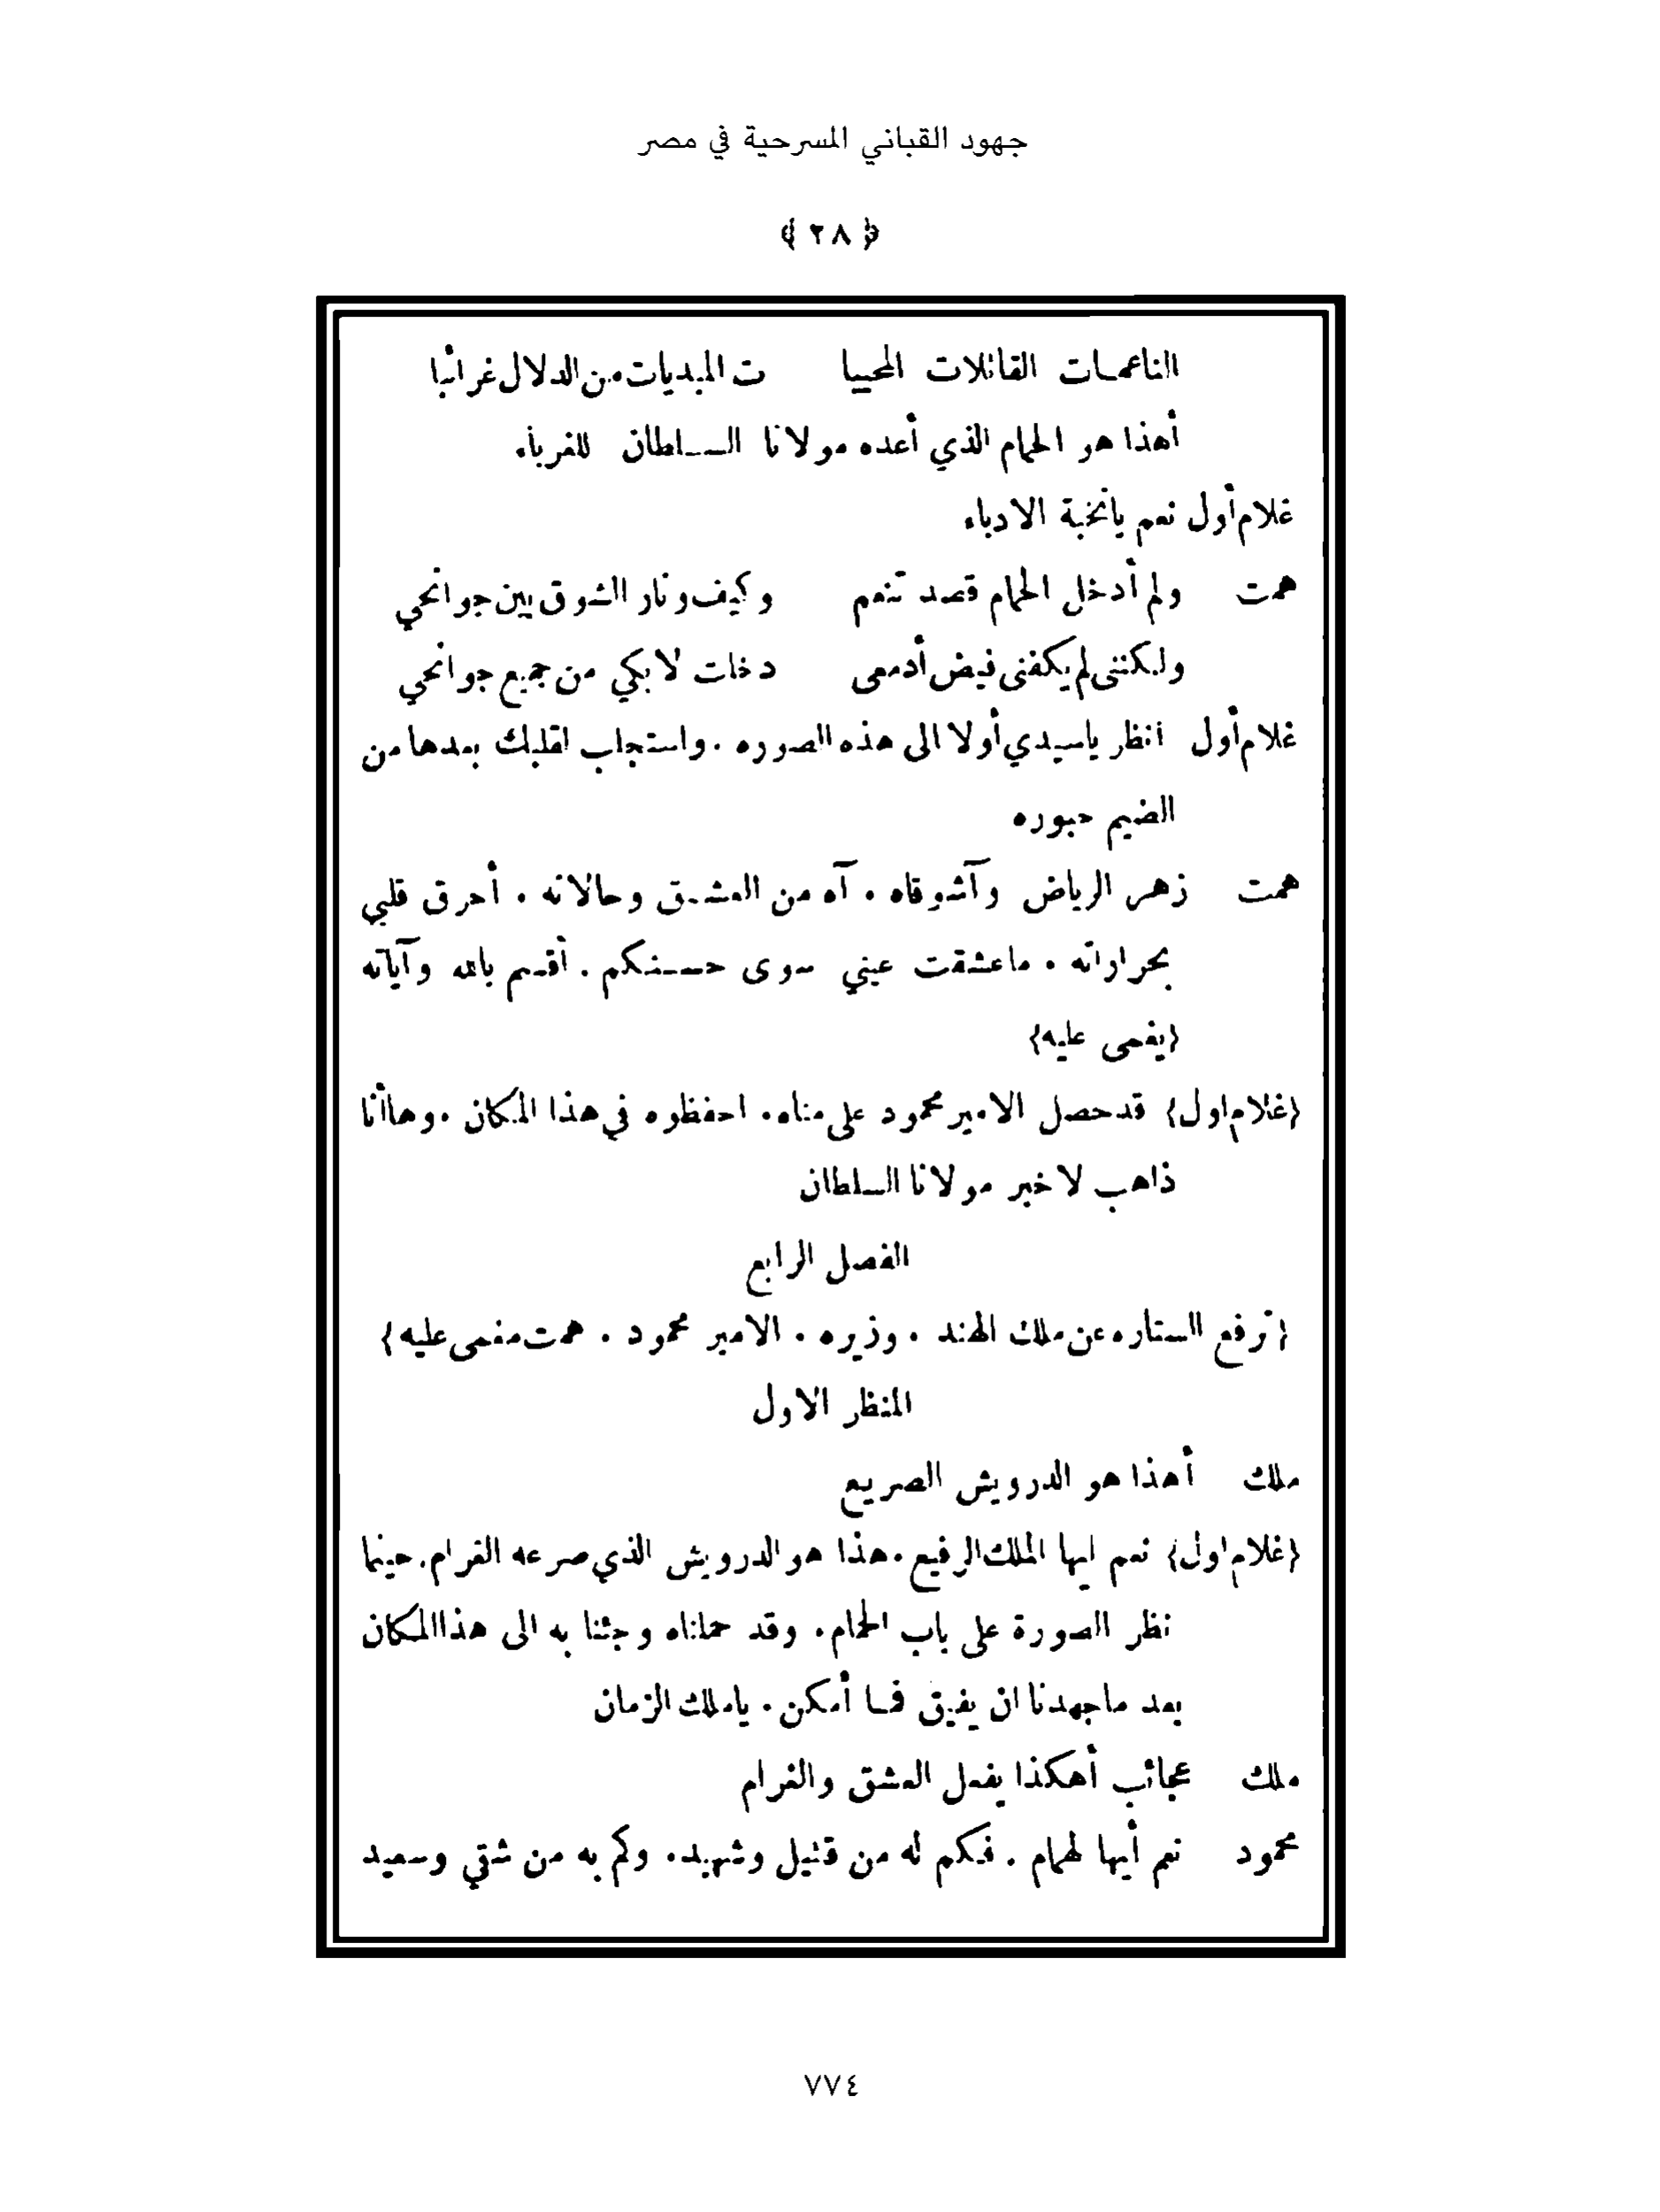 جهود القباني المسرحية في مصر
﴿ ٢٨ ﴾
الناعمات القاتلات المحييا ت المبديات من الدلال غرائبا
أهذا هو الحمام الذي أعده مولانا السلطان للغرباء
غلام أول نعم يانخبة الادباء
همت ولم أدخل الحمام قصد تنعم وكيف ونار الشوق بين جوانحي
ولكنني لم يكفني فيض أدمعي دخلت لابكي من جميع جوانحي
غلام أول انظر ياسيدي أولا الى هذه الصوره . واستجاب لقلبك بعدها من
الضيم حبوره
همت زهر الرياض وآشوقاه . آه من العشق وحالاته . أحرق قلبي
بحراراته . ماعشقت عيني سوى حسنكم . أقسم بالله وآياته
{يغمى عليه}
{غلام اول} قد حصل الامير محمود على مناه . احفظوه في هذا المكان . وهاأنا
ذاهب لاخبر مولانا السلطان
الفصل الرابع
{ترفع الستاره عن ملك الهند . وزيره . الامير محمود . همت مغمى عليه}
المنظر الاول
ملك أهذا هو الدرويش الصريع
{غلام اول} نعم ايها الملك الرفيع . هذا هو الدرويش الذي صرعه الغرام . حينما
نظر الصورة على باب الحمام . وقد حملناه وجئنا به الى هذا المكان
بعد ماجهدنا ان يفيق فما أمكن . ياملك الزمان
ملك عجائب أهكذا يفعل العشق والغرام
محمود نعم أيها لهمام . فكم له من قتيل وشهيد . وكم به من شقي وسعيد
٧٧٤